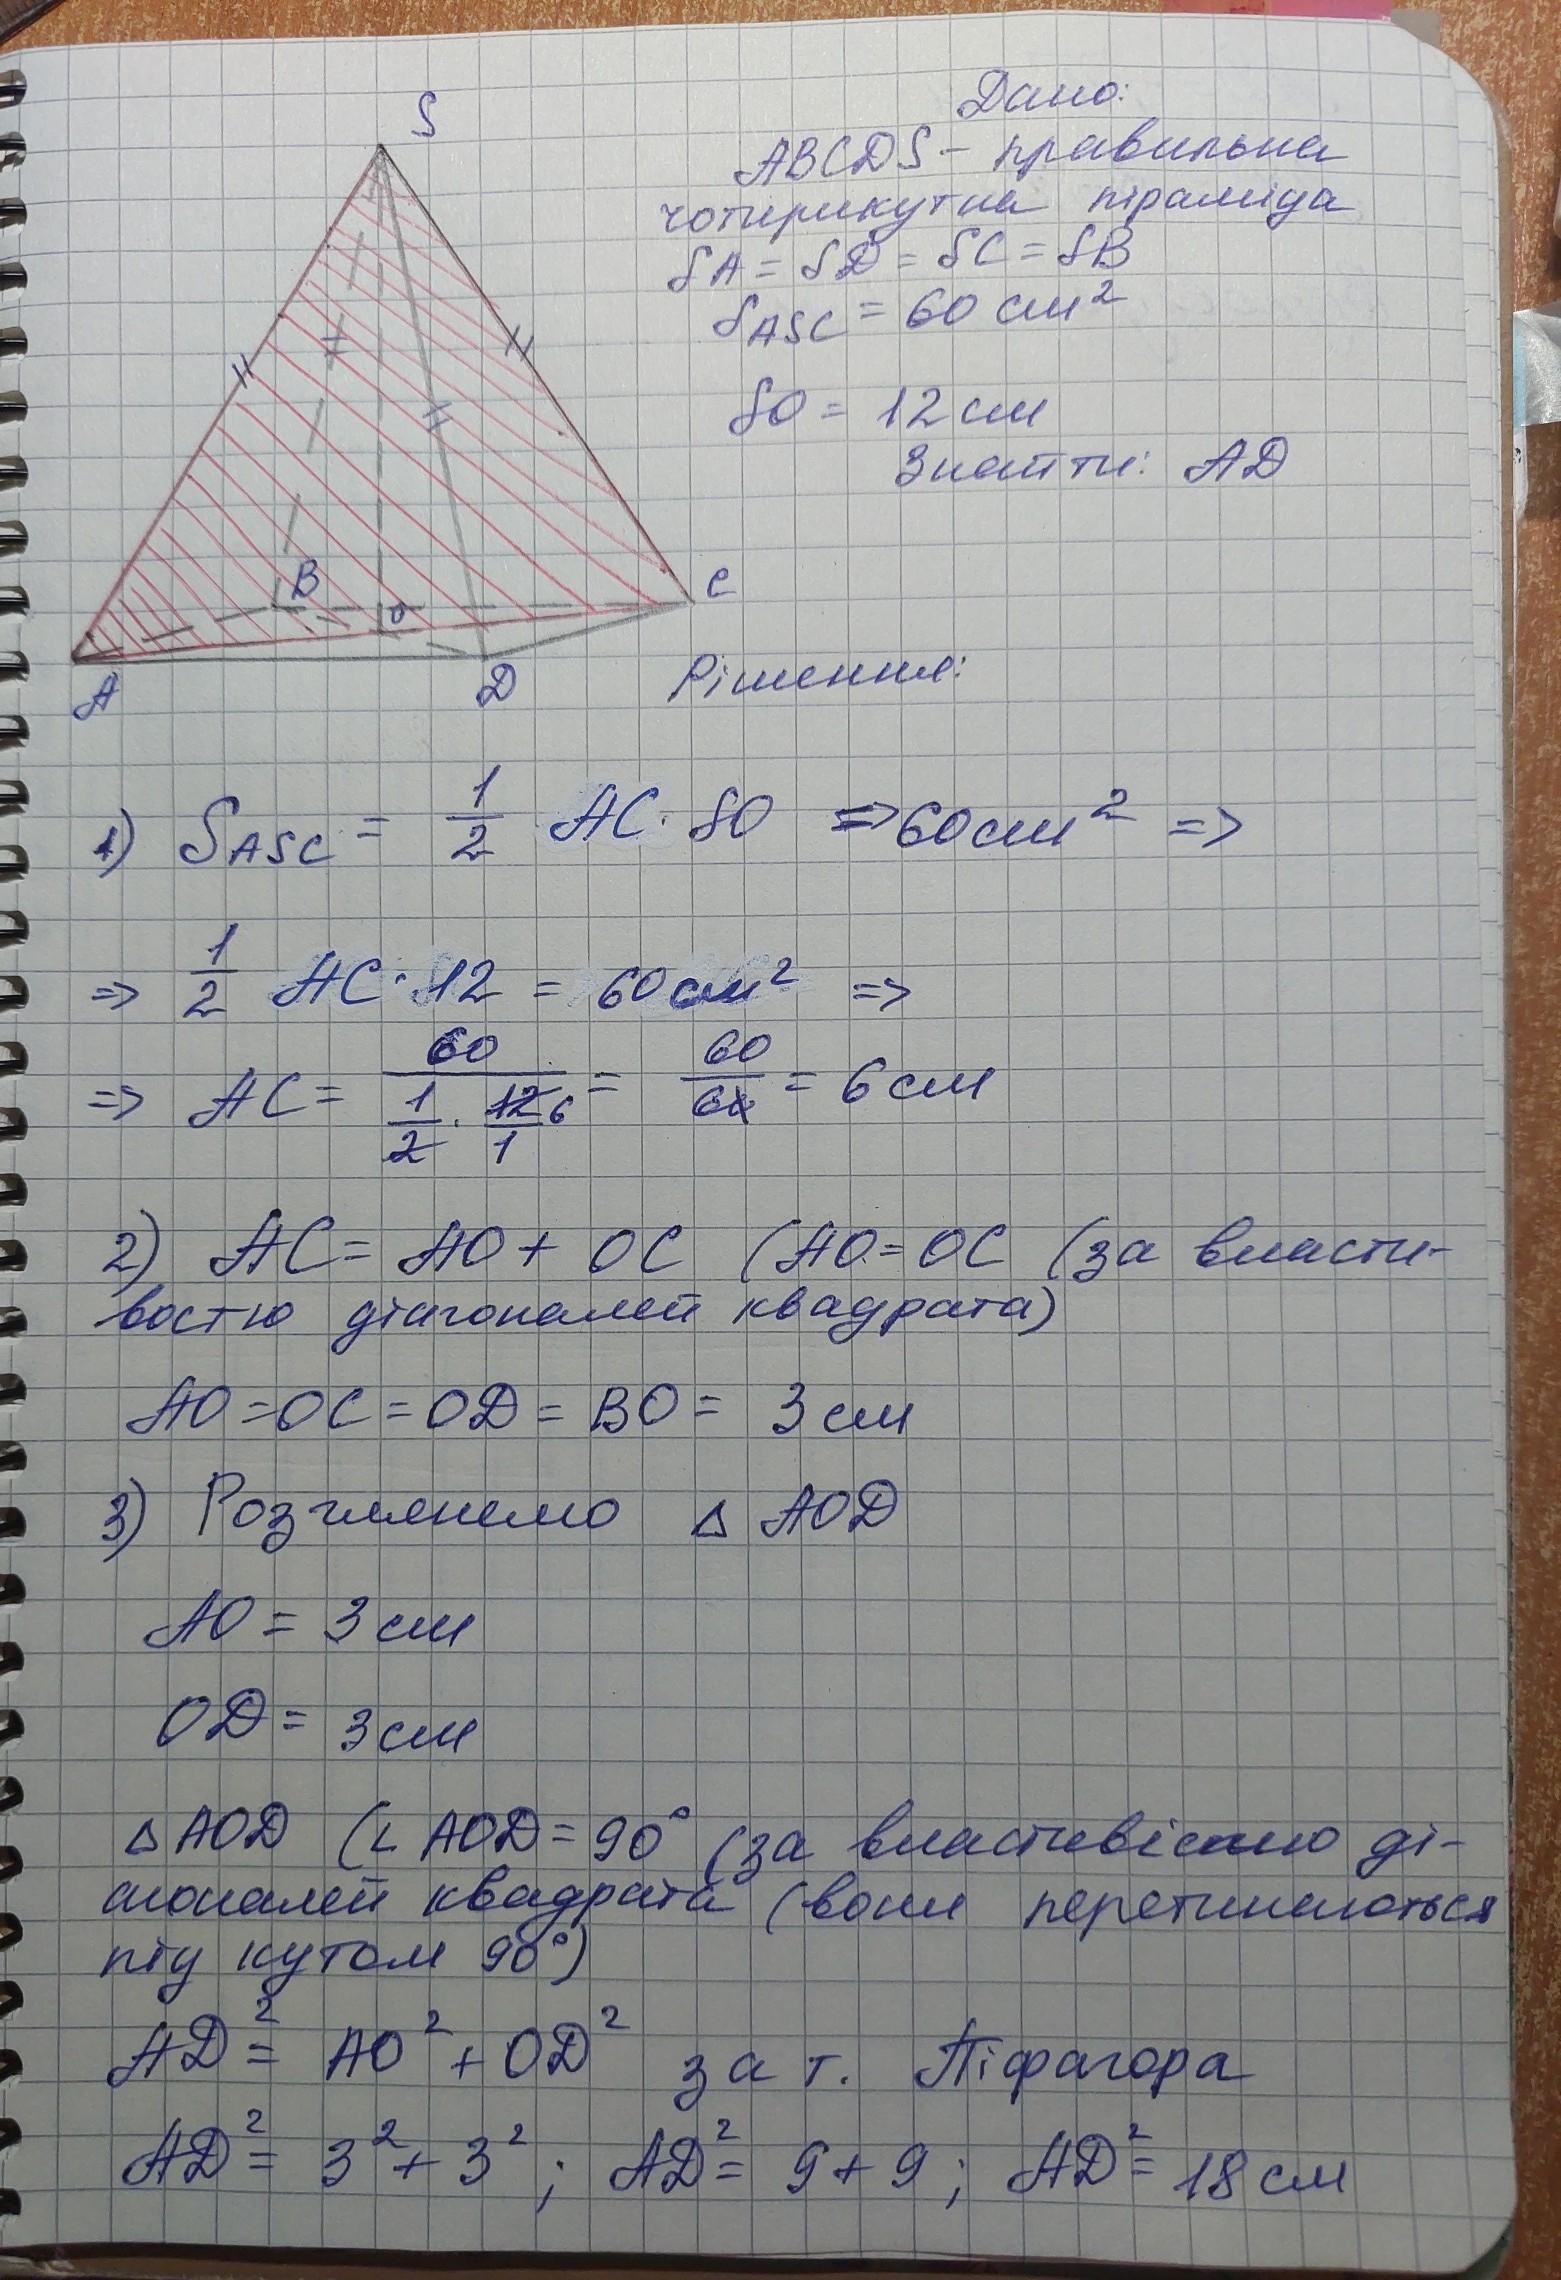 S
Дано:
ABCDS - правильна
чотирикутна піраміда
SA = SD = SC = SB
S ASC = 60 см²
SO = 12 см
Знайти: AD
B
O
C
A
D
Рішення:
1) S ASC = 1/2 AC · SO => 60 см² =>
=> 1/2 AC · 12 = 60 см² =>
=> AC = 60 / (1/2 · 12/1) 6 = 60/6 = 6 см
2) AC = AO + OC (AO = OC (за власти-
востю діагоналей квадрата)
AO = OC = OD = BO = 3 см
3) Розглянемо △ AOD
AO = 3 см
OD = 3 см
△ AOD (∟ AOD = 90° (за властивістю ді-
агоналей квадрата (вони перетинаються
під кутом 90°)
AD² = AO² + OD² за т. Піфагора
AD² = 3² + 3² ; AD² = 9 + 9 ; AD² = 18 см